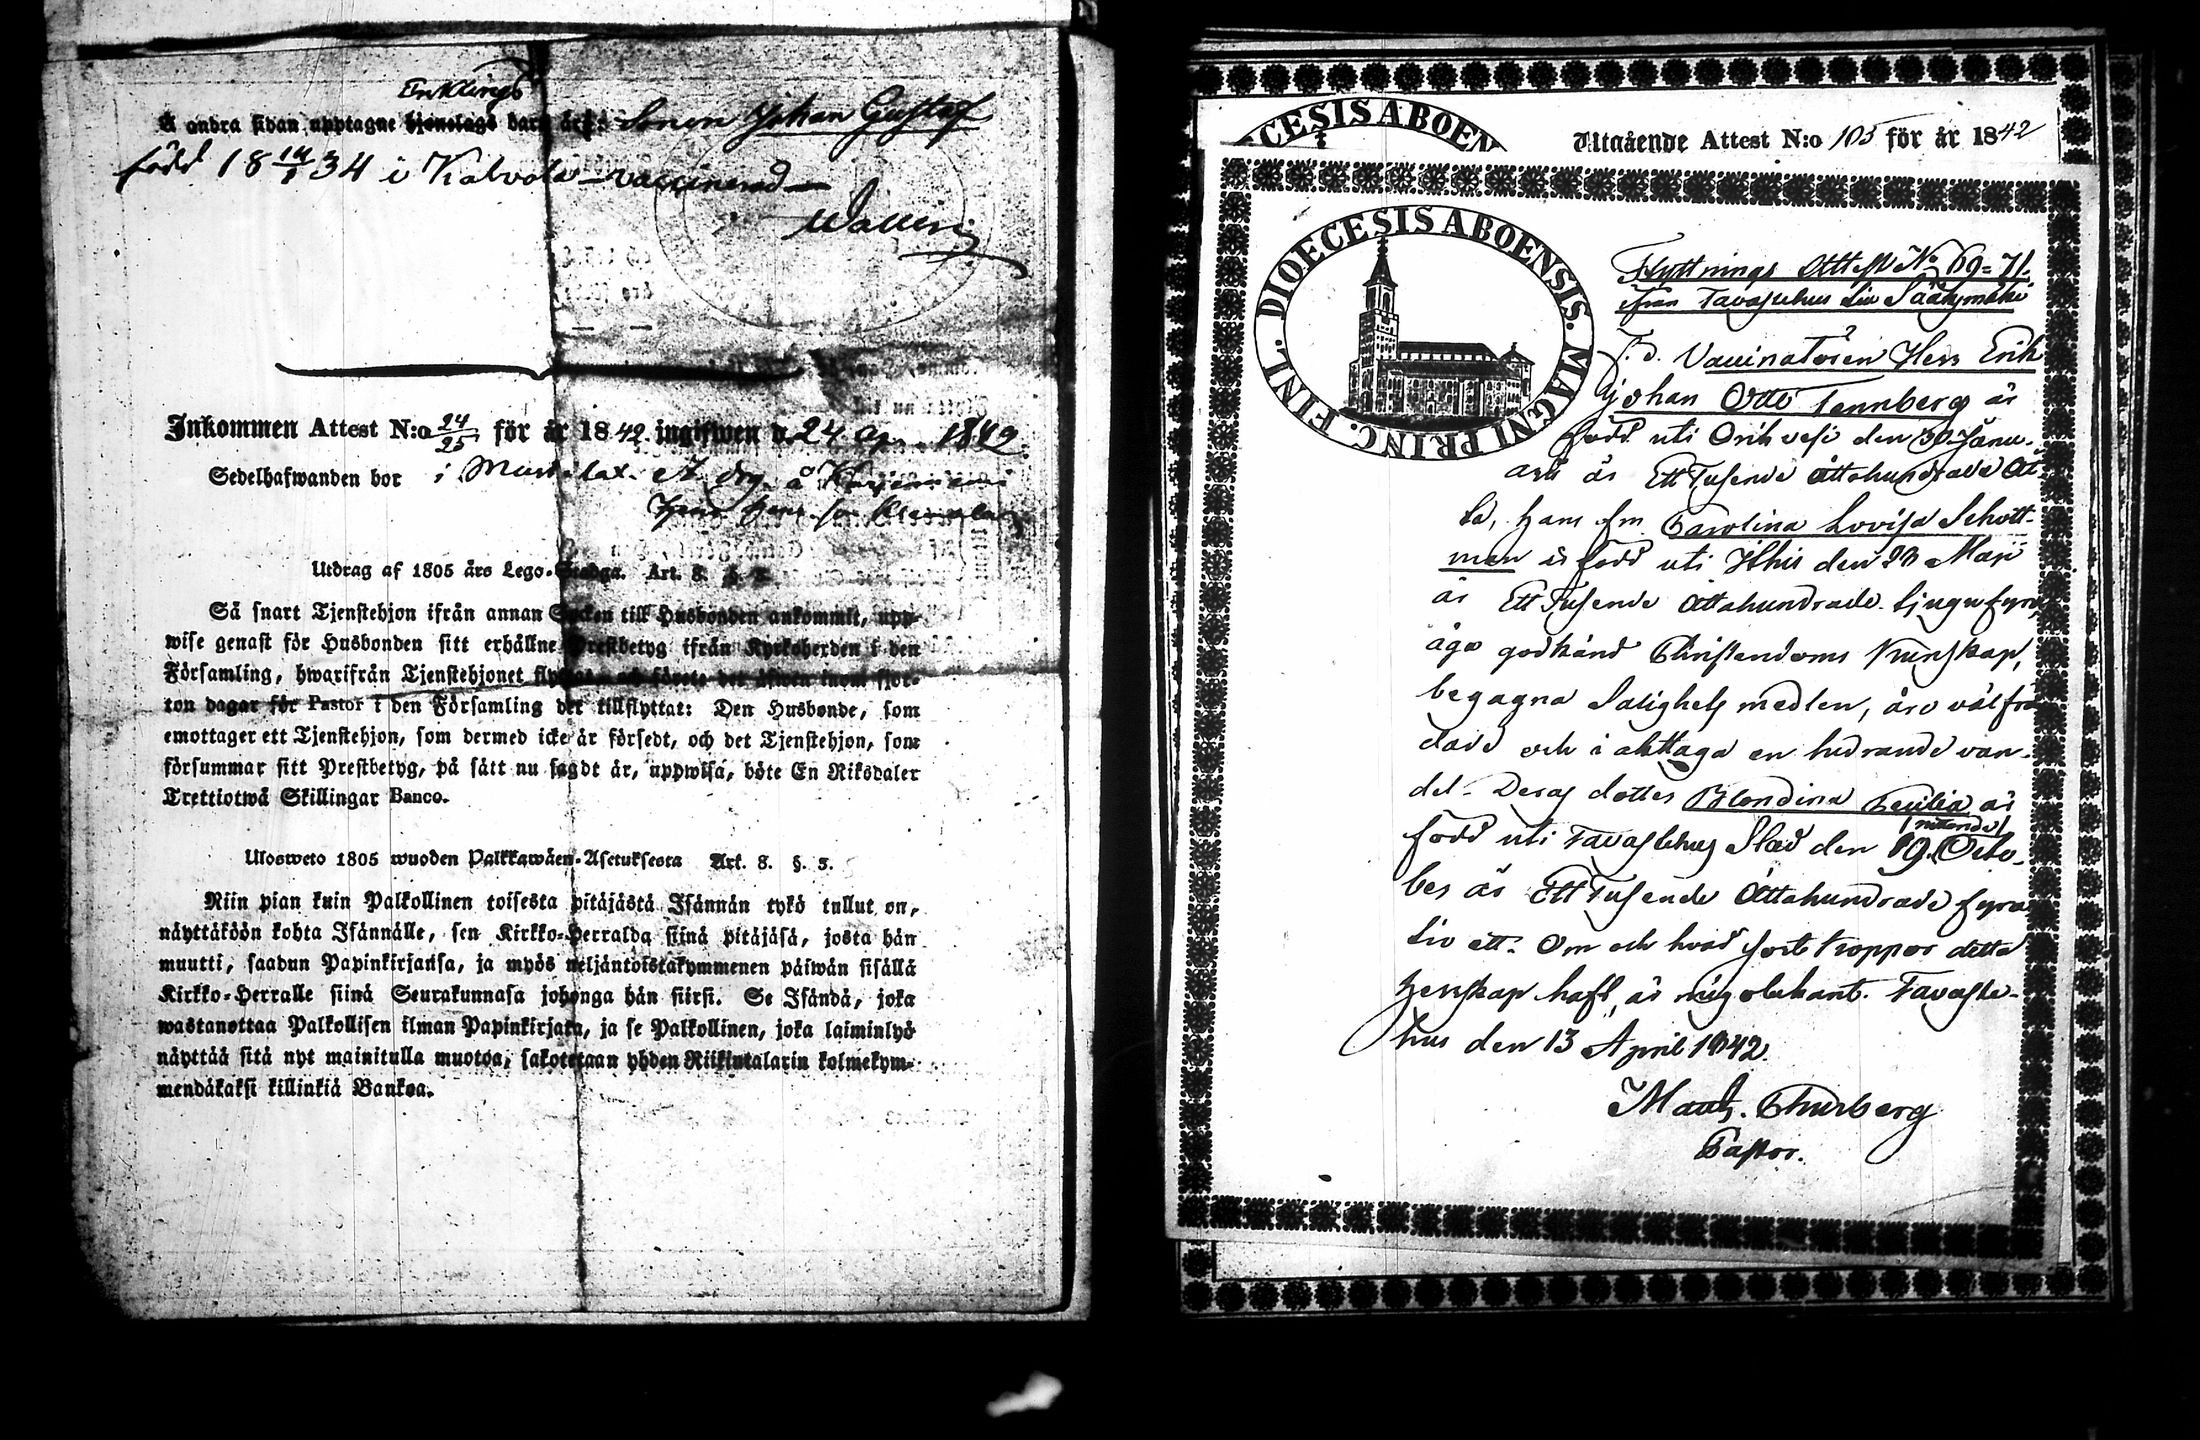 Enklings
Å andra sidan upptagne hjonelags barn äro: Sonen Johan Gustaf
född 18 14/1 34 i Kalvola – vaccinerad –
Inkommen Attest N:o 24/25 för år 1842. ingifwen d. 24 Ap. 1842.
Sedelhafwanden bor i
Utdrag af 1805 års Lego-Stadga. Art. 8.
Så snart Tjenstehjon ifrån annan Socken till Husbonden ankommit, upp-
wise genast för Husbonden sitt erhållne Prestbetyg ifrån Kyrkoherden i den
Församling, hwarifrån Tjenstehjonet flyttat, och förete det äfwen inom fjor-
ton dagar för Pastor i den Församling det tillflyttat: Den Husbonde, som
emottager ett Tjenstehjon, som dermed icke är försedt, och det Tjenstehjon, som
försummar sitt Prestbetyg, på sätt nu sagdt är, uppwisa, böte En Riksdaler
Trettiotwå Skillingar Banco.
Ulosweto 1805 wuoden Palkkawäen-Asetuksesta Art. 8. §. 3.
Niin pian kuin Palkollinen toisesta pitäjästä Isännän tykö tullut on,
näyttäköön kohta Isännälle, sen Kirkko-Herralda siinä pitäjäsä, josta hän
muutti, saadun Papinkirjansa, ja myös neljäntoistakymmenen päiwän sisällä
Kirkko-Herralle siinä Seurakunnasa johonga hän siirsi. Se Isändä, joka
wastanottaa Palkollisen ilman Papinkirjata, ja se Palkollinen, joka laiminlyö
näyttää sitä nyt mainitulla muotoa, sakotetaan yhden Riikintalarin kolmekym-
mendäkaksi killinkiä Bankoa.
CESIS ABOEN
Utgående Attest N:o 105 för år 1842
DIOECESIS ABOENSIS. MAGNI PRINC. FINL.
Flyttnings Attest No 69-71.
ifrån Tavastehus till Säädymäki
F. d. Vaccinatören Herr Erik
Johan Otto Tennberg är
född uti Orihvesi den 30 Janu-
arii år Ett Tusende Åttahundrade Åt-
ta, hans fru Carolina Lovisa Schott-
man är född uti Ithis den 23 Maji
år Ett Tusende Åttahundrade tjugufyra,
äga godkänd Christendoms Kunskap,
begagna Salighets medlen, äro välfräj-
dade och i akttaga en hedrande van-
del. Deras dotter Blondina Cecilia är
född uti Tavastehus Stad den 19 (nittonde) Octo-
ber år Ett Tusende Åttahundrade fyra-
tio ett. Om och hvad Sorts koppor detta
herskap haft, är mig obekant. Tavaste-
hus den 13 April 1842.
Maur. Thurberg
Pastor.